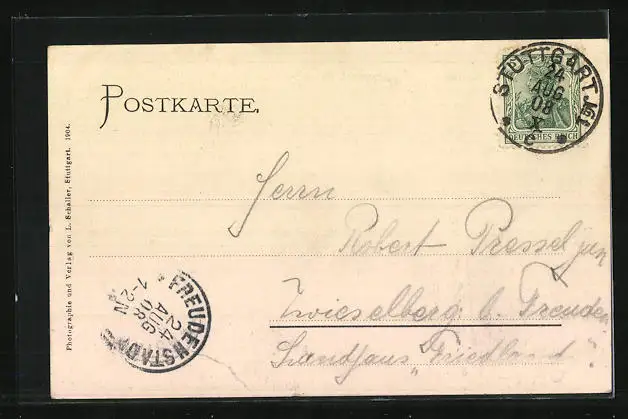 POSTKARTE.
STUTTGART No1
24
AUG
08
X
DEUTSCHES REICH
Herrn
Robert Pressel jun
Zwieselberg b. Freuden
Landhaus „Friedland“.
FREUDENSTADT
24
AUG
08
1-2N
Photographie und Verlag von L. Schaller, Stuttgart. 1904.